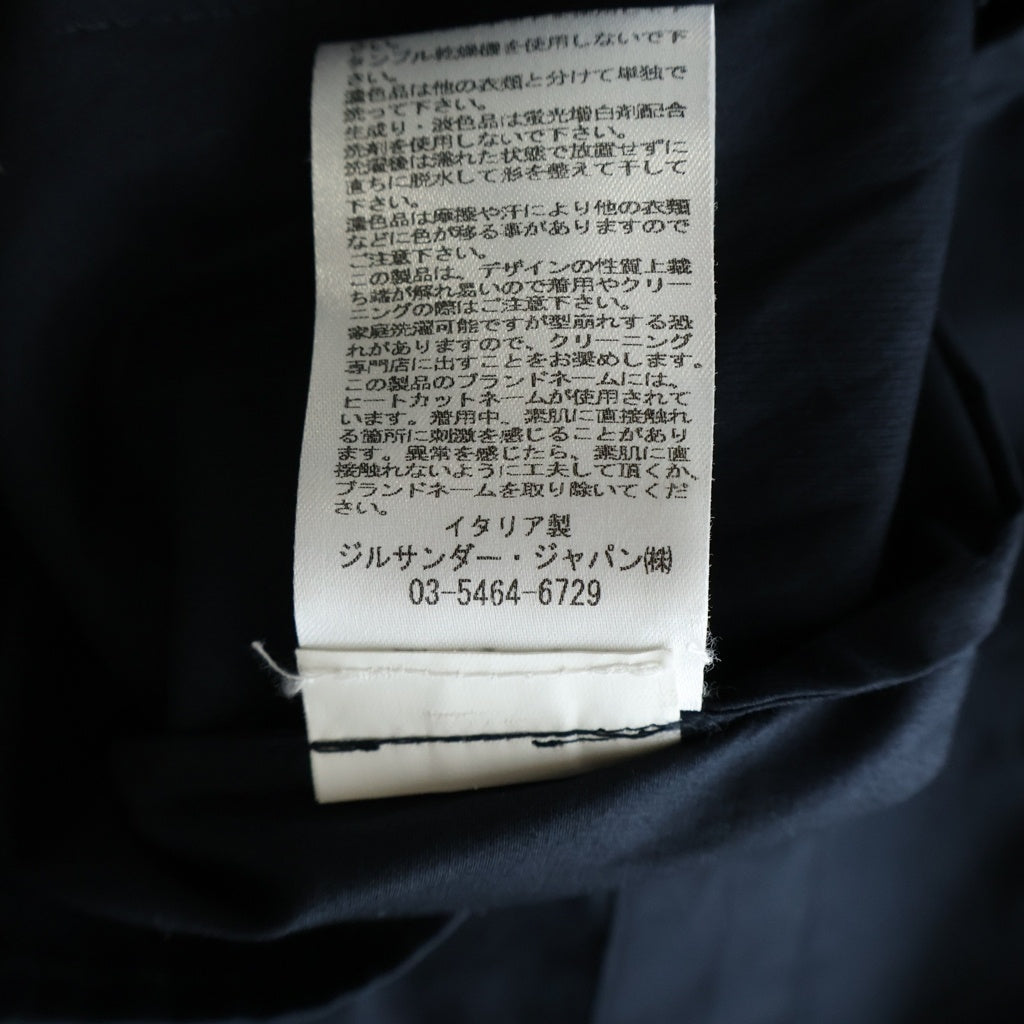 さい。
タンブル乾燥機を使用しないで下
さい。
濃色品は他の衣類と分けて単独で
洗って下さい。
生成り・淡色品は蛍光増白剤配合
洗剤を使用しないで下さい。
洗濯後は濡れた状態で放置せずに
直ちに脱水して形を整えて干して
下さい。
濃色品は摩擦や汗により他の衣類
などに色が移る事がありますので
ご注意下さい。
この製品は、デザインの性質上裁
ち端が解れ易いので着用やクリー
ニングの際はご注意下さい。
家庭洗濯可能ですが型崩れする恐
れがありますので、クリーニング
専門店に出すことをお奨めします。
この製品のブランドネームには、
ヒートカットネームが使用されて
います。着用中、素肌に直接触れ
る箇所に刺激を感じることがあり
ます。異常を感じたら、素肌に直
接触れないように工夫して頂くか、
ブランドネームを取り除いてくだ
さい。
イタリア製
ジルサンダー・ジャパン㈱
03-5464-6729